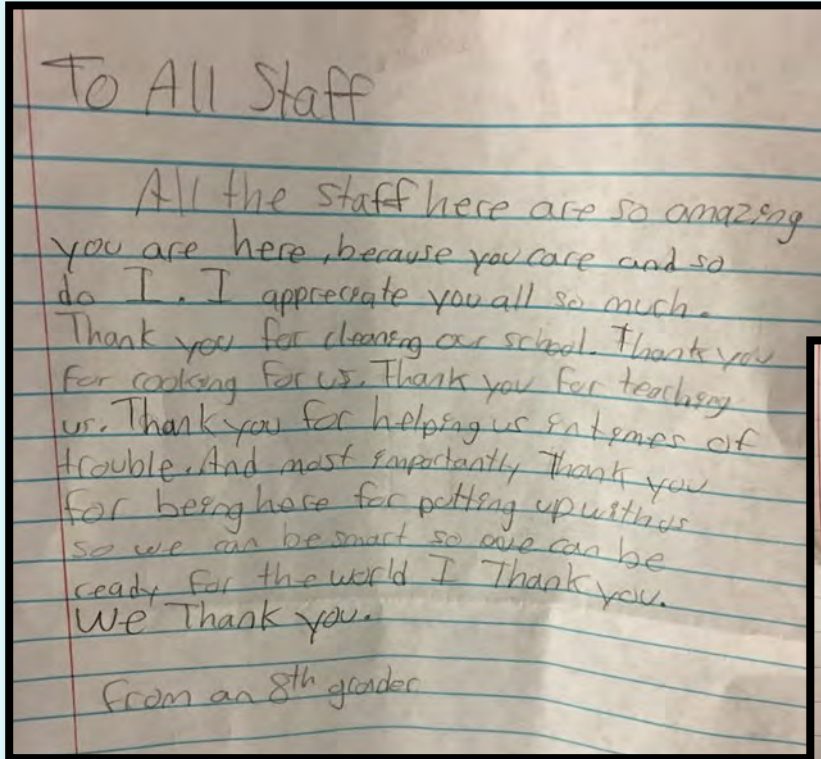 To All Staff
All the staff here are so amazing
you are here, because you care and so
do I. I appreceate you all so much.
Thank you for cleaning our school. Thank you
for cooking for us. Thank you for teaching
us. Thank you for helping us in times of
trouble. And most importantly Thank you
for being here for putting up with us
so we can be smart so we can be
ready for the world I Thank you.
We Thank you.
from an 8th grader